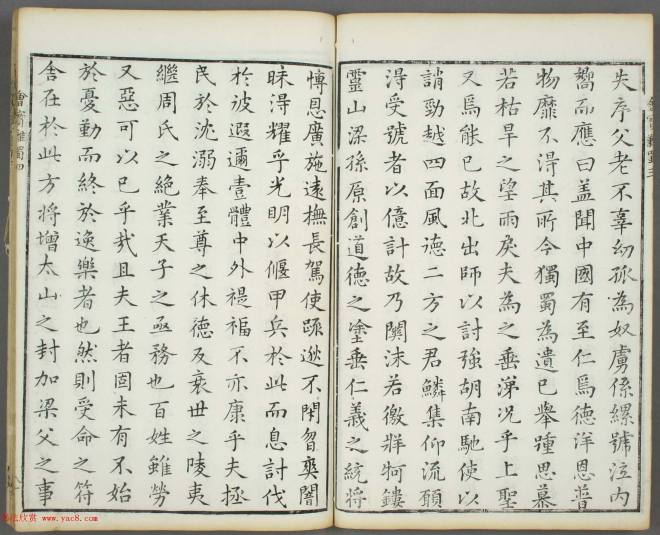 失序父老不辜幼孤為奴虜係縲號泣内
嚮而應曰盖聞中國有至仁焉德洋恩普
物靡不得其所今獨蜀為遺已舉踵思慕
若枯旱之望雨戾夫為之垂涕况乎上聖
又焉能已故北出師以討強胡南馳使以
誚勁越四面風德二方之君鱗集仰流願
得受號者以億計故乃關沬若徼牂牁鏤
靈山梁孫原創道德之塗垂仁義之統將
博恩廣施遠撫長駕使疏逖不閉曶爽闇
昧得耀乎光明以偃甲兵於此而息討伐
於彼遐邇壹體中外禔福不亦康乎夫拯
民於沈溺奉至尊之休德反衰世之陵夷
繼周氏之絶業天子之亟務也百姓雖勞
又惡可以已乎哉且夫王者固未有不始
於憂勤而終於逸樂者也然則受命之符
合在於此方將增太山之封加梁父之事
法欣赏 www.yac8.com